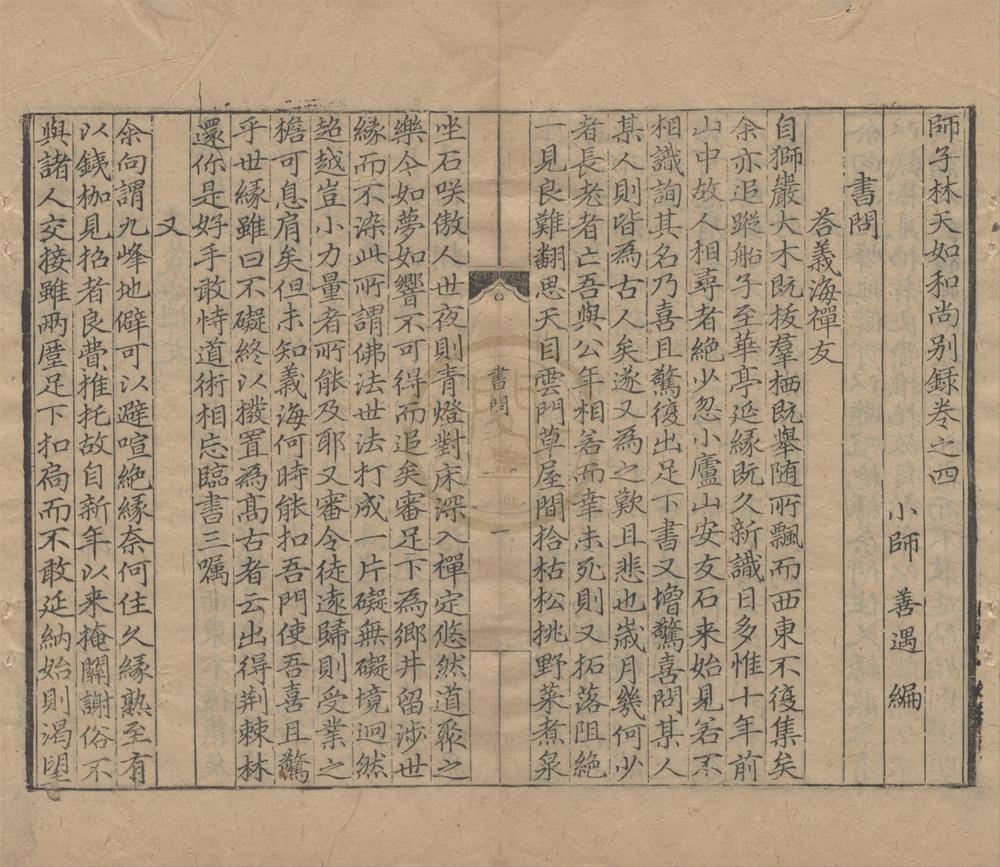 師子林天如和尚别録卷之四
小師 善遇 編
書問
荅義海禪友
自獅巖大木既拔羣栖既舉随所飄而西東不復集矣
余亦追蹤船子至華亭延緣既久新識日多惟十年前
山中故人相尋者絶少忽小廬山安友石来始見若不
相識詢其名乃喜且驚復出足下書又增驚喜問某人
某人則皆為古人矣遂又為之歎且悲也嵗月幾何少
者長老者亡吾與公年相若而幸未死則又拓落阻絶
一見良難翻思天目雲門草屋間拾枯松挑野菜煮泉
書問
一
坐石咲傲人世夜則青燈對床深入禪定悠然道聚之
樂今如夢如響不可得而追矣審足下為鄉井留涉世
緣而不染此所謂佛法世法打成一片礙無礙境迥然
超越豈小力量者所能及耶又審令徒遠歸則受業之
擔可息肩矣但未知義海何時能扣吾門使吾喜且驚
乎世緣雖曰不礙終以撥置為髙古者云出得荆棘林
還你是好手敢恃道術相忘臨書三嘱
又
余向謂九峰地僻可以避喧絶緣奈何住久緣熟至有
以銕枷見招者良費推托故自新年以来掩關謝俗不
與諸人交接雖兩厪足下扣扃而不敢延納始則渴望